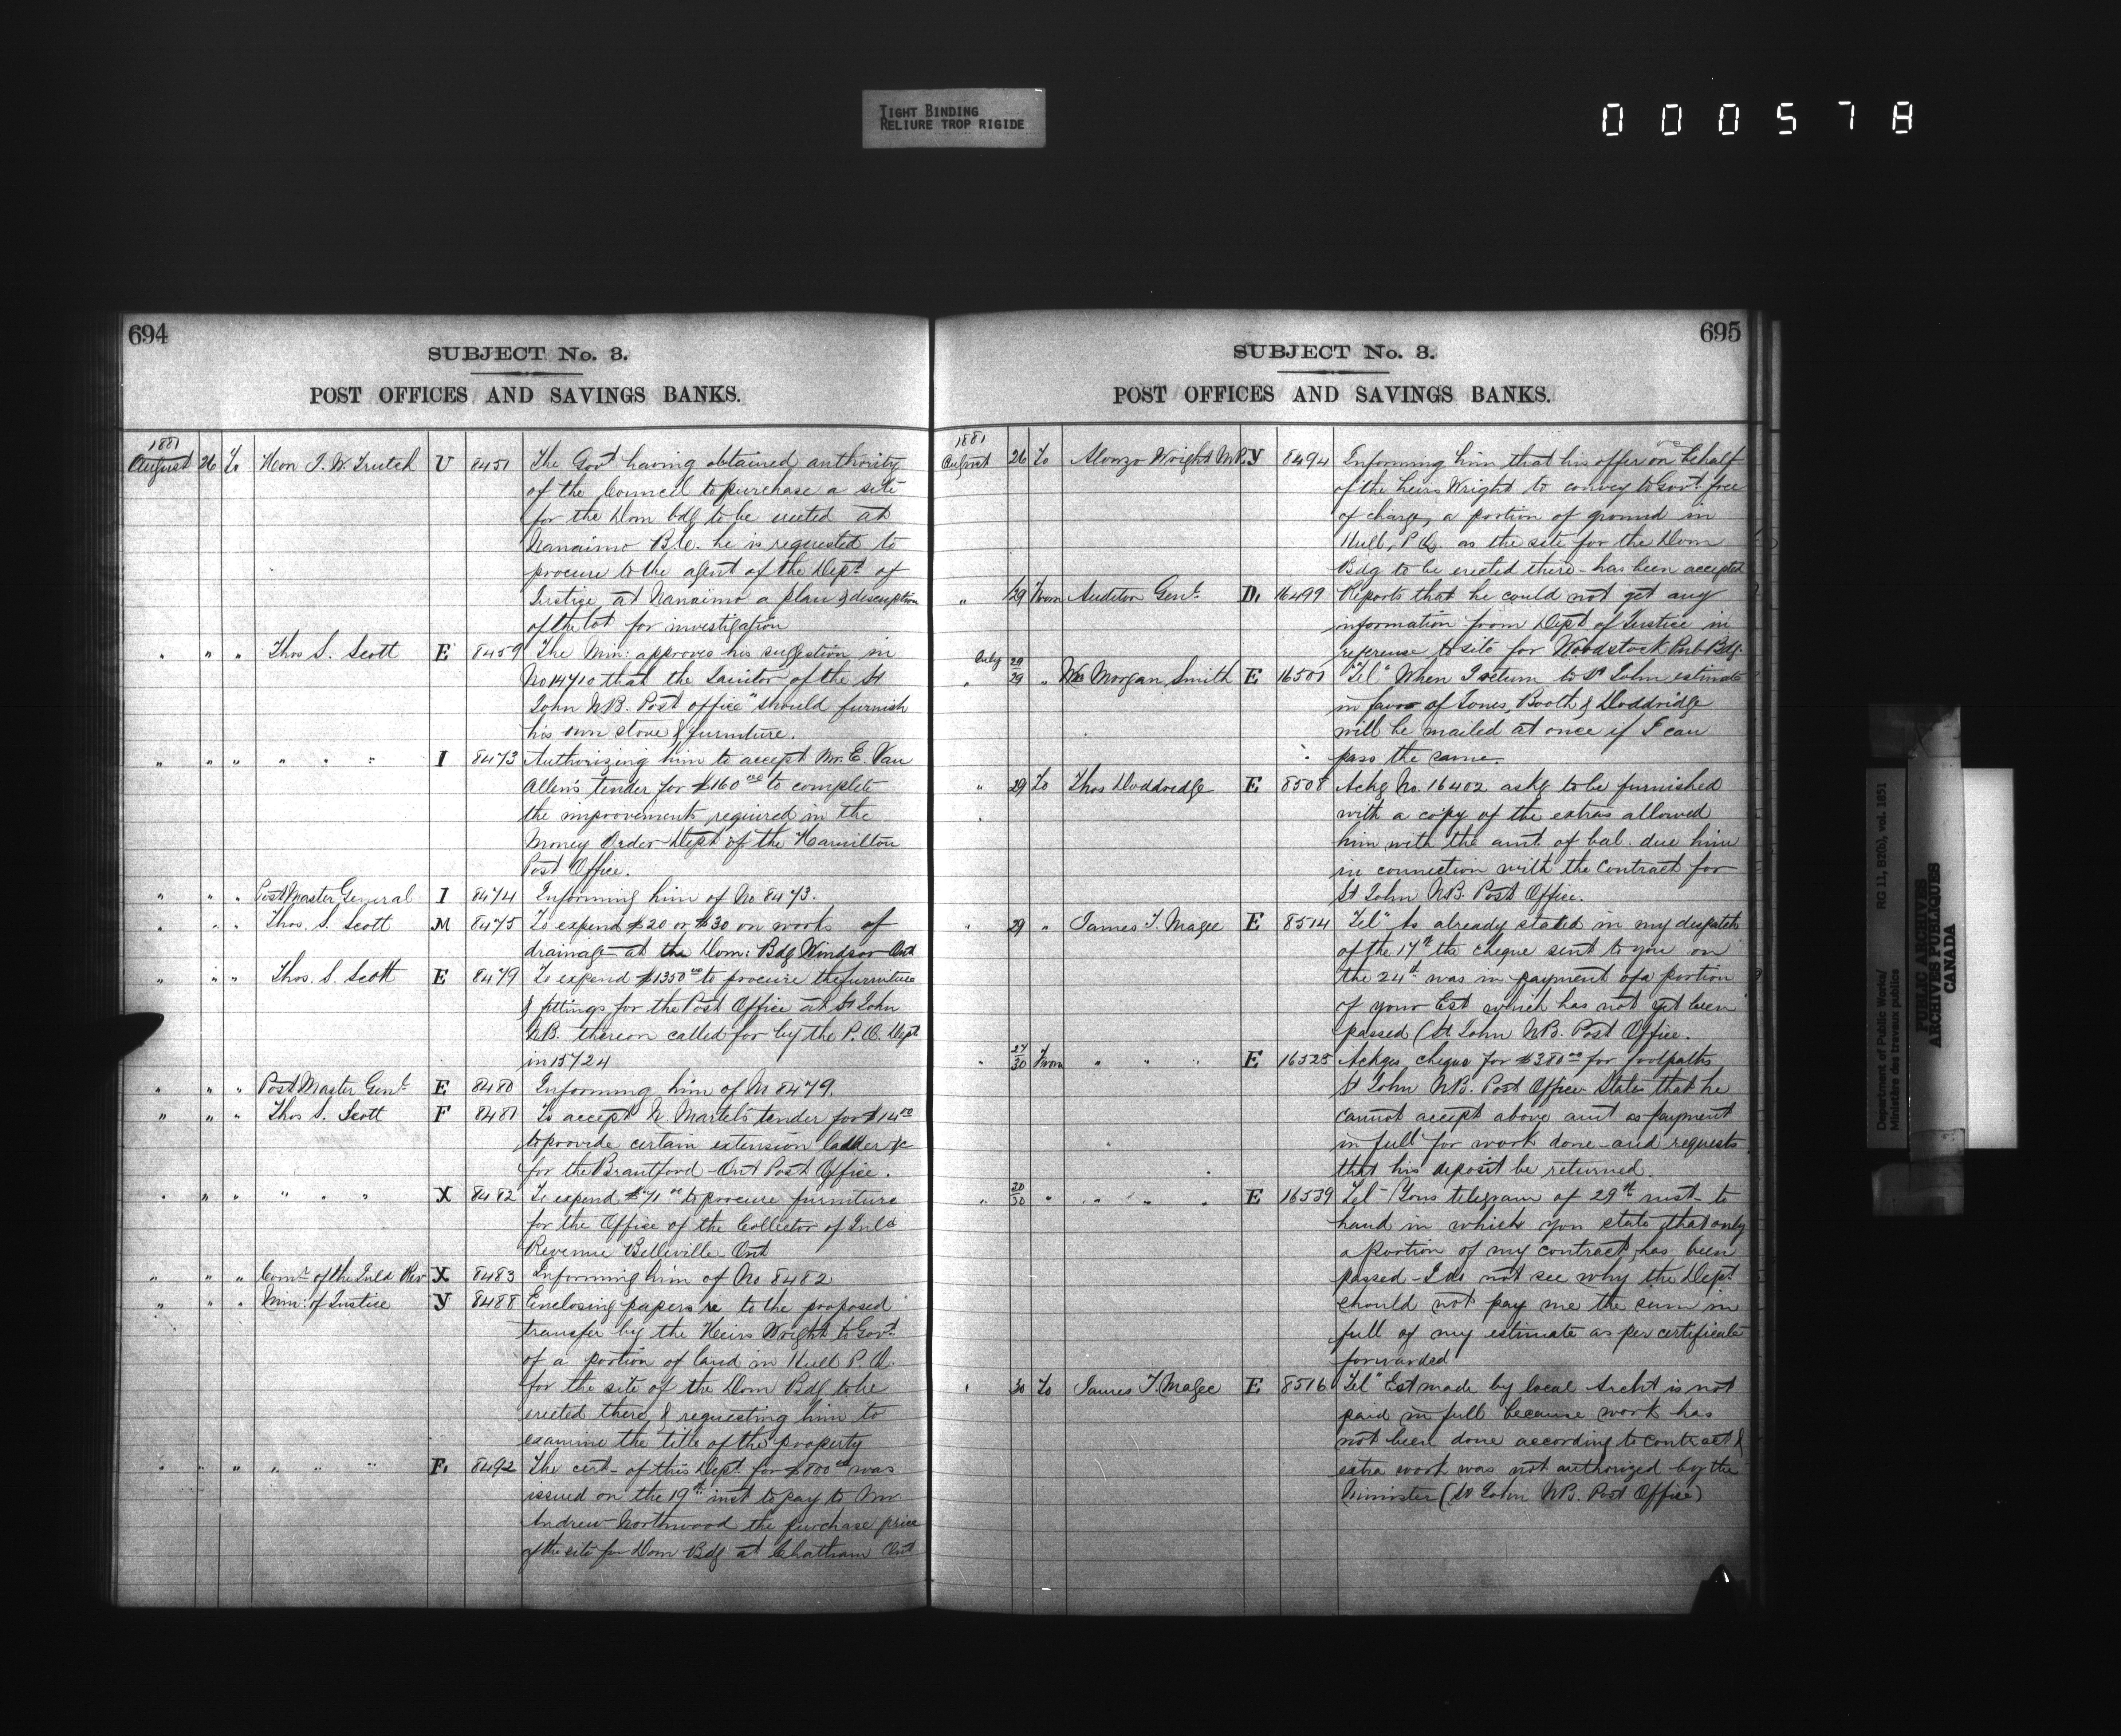 TIGHT BINDING
RELIURE TROP RIGIDE
000578
694
SUBJECT No. 3.
POST OFFICES AND SAVINGS BANKS.
1881
August 26 To Hon J. W. Trutch U 8451 The Govt having obtained authority
of the Council to purchase a site
for the Dom bdg to be erected at
Nanaimo B.C. he is requested to
procure to the agent of the Dept of
Justice at Nanaimo a plan & description
of the lot for investigation
" " " Thos S. Scott E 8459 The Min: approves his suggestion in
No 14710 that the Janitor of the St
John NB. Post office" should furnish
his own stove & furniture.
" " " " " " I 8473 Authorizing him to accept Mr. E. Van
Allen's tender for $160 00 to complete
the improvements required in the
Money Order Dept of the Hamilton
Post Office.
" " " Post Master General I 8474 Informing him of No 8473.
" " " Thos. S. Scott M 8475 To expend $20 or $30 on works of
drainage at the Dom: Bdg Windsor Ont
" " " Thos. S. Scott E 8479 To expend $1350 00 to procure the furniture
& fittings for the Post Office at St John
NB. thereon called for by the P.O. Dept
in 15724
" " " Post Master Genl E 8480 Informing him of No 8479.
" " " Thos S. Scott F 8481 To accept N. Martel's tender for $14 00
to provide certain extension ladder &c
for the Brantford Ont Post Office.
" " " " " " X 8482 To expend $71 00 to procure furniture
for the Office of the Collector of Inld
Revenue Belleville Ont
" " " Comr of the Inld Rev X 8483 Informing him of No 8482
" " " Min: of Justice Y 8488 Enclosing papers re to the proposed
transfer by the Heirs Wright to Govt
of a portion of land in Hull P.Q.
for the site of the Dom Bdg to be
erected there, & requesting him to
examine the title of the property
" " " " " " F. 8492 The cert of this Dept for $800 00 was
issued on the 19th inst to pay to Mr
Andrew Northwood the purchase price
of the site for Dom Bdg at Chatham Ont
695
SUBJECT No. 3.
POST OFFICES AND SAVINGS BANKS.
1881
August 26 To Alonzo Wright M.P. Y 8494 Informing him that his offer on behalf
of the heirs Wright to convey to Govt free
of charge, a portion of ground in
Hull, P.Q. as the site for the Dom
Bdg to be erected there - has been accepted
" 29 From Auditor Genl. D. 16499 Reports that he could not get any
information from Dept of Justice in
reference to site for Woodstock Pub Bdg.
July 29
" 29 " Morgan Smith E 16501 "Tel" When I return to St John estimate
in favor of Jones, Booth & Doddridge
will be mailed at once if I can
pass the same.
" 29 To Thos Doddridge E 8508 Ackg No. 16402 askg to be furnished
with a copy of the extras allowed
him with the amt. of bal. due him
in connection with the Contract for
St John NB. Post Office.
" 29 " James T. Magee E 8514 Tel" As already stated in my despatch
of the 17th the cheque sent to you on
the 24th was in payment of a portion
of your Est which has not yet been
passed (St John NB. Post Office.
" 27/30 From " " " E 16525 Ackges cheque for $380 00 for footpaths
St John NB. Post Office States that he
cannot accept above amt as payment
in full for work done and requests
that his deposit be returned.
" 20/30 " " " " E 16539 Tel - Yours telegram of 29th inst to
hand in which you state that only
a portion of my contract has been
passed - I do not see why the Dept
should not pay me the sum in
full of my estimate as per certificate
forwarded
" 30 To James T. Magee E 8516 Tel" Est made by local Archt is not
paid in full because work has
not been done according to contract &
extra work was not authorized by the
Minister (St John NB. Post Office)
Department of Public Works/
Ministère des travaux publics
RG 11, B2(b), vol. 1851
PUBLIC ARCHIVES
ARCHIVES PUBLIQUES
CANADA